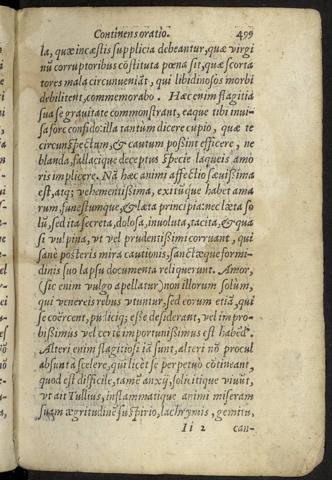 Continens oratio. 499
la, quæ incæstis supplicia debeantur, quæ virgi
nū corruptoribus cōstituta pœna sit, quæ scorta
tores mala circunueniāt, qui libidinosos morbi
debilitent, commemorabo. Hæc enim flagitia
sua se grauitate commonstrant, eaque tibi inui-
sa fore confido: illa tantum dicere cupio, quæ te
circunspectum, & cautum possint efficere, ne
blanda, fallacíque deceptus specie laqueis amo
ris implicere. Nā hæc animi affectio sæuissima
est, atq; vehementissima, exitúque habet ama
rum, funestumque, & læta principia: nec læta so
lū, sed ita secreta, dolosa, inuoluta, tacita, & qua
si vulpina, vt vel prudentissimi corruant, qui
sanè posteris mira cautionis, sanctæque formi-
dinis suo lapsu documenta reliquerunt. Amor,
(sic enim vulgo apellatur) non illorum solùm,
qui venereis rebus vtuntur, sed eorum etiā, qui
se coërcent, pudiciq; esse desiderant, vel impro-
bissimus vel certè importunissimus est habēd9.
Alteri enim flagitiosi iā sunt, alteri nō procul
absunt à scelere, qui licèt se perpetuò cōtineant,
quod est difficile, tamē anxij, solicitique viuūt,
vt ait Tullius, inflammatique animi miseram
suam ægritudinē suspirio, lachrymis, gemitu,
Ii 2 can-